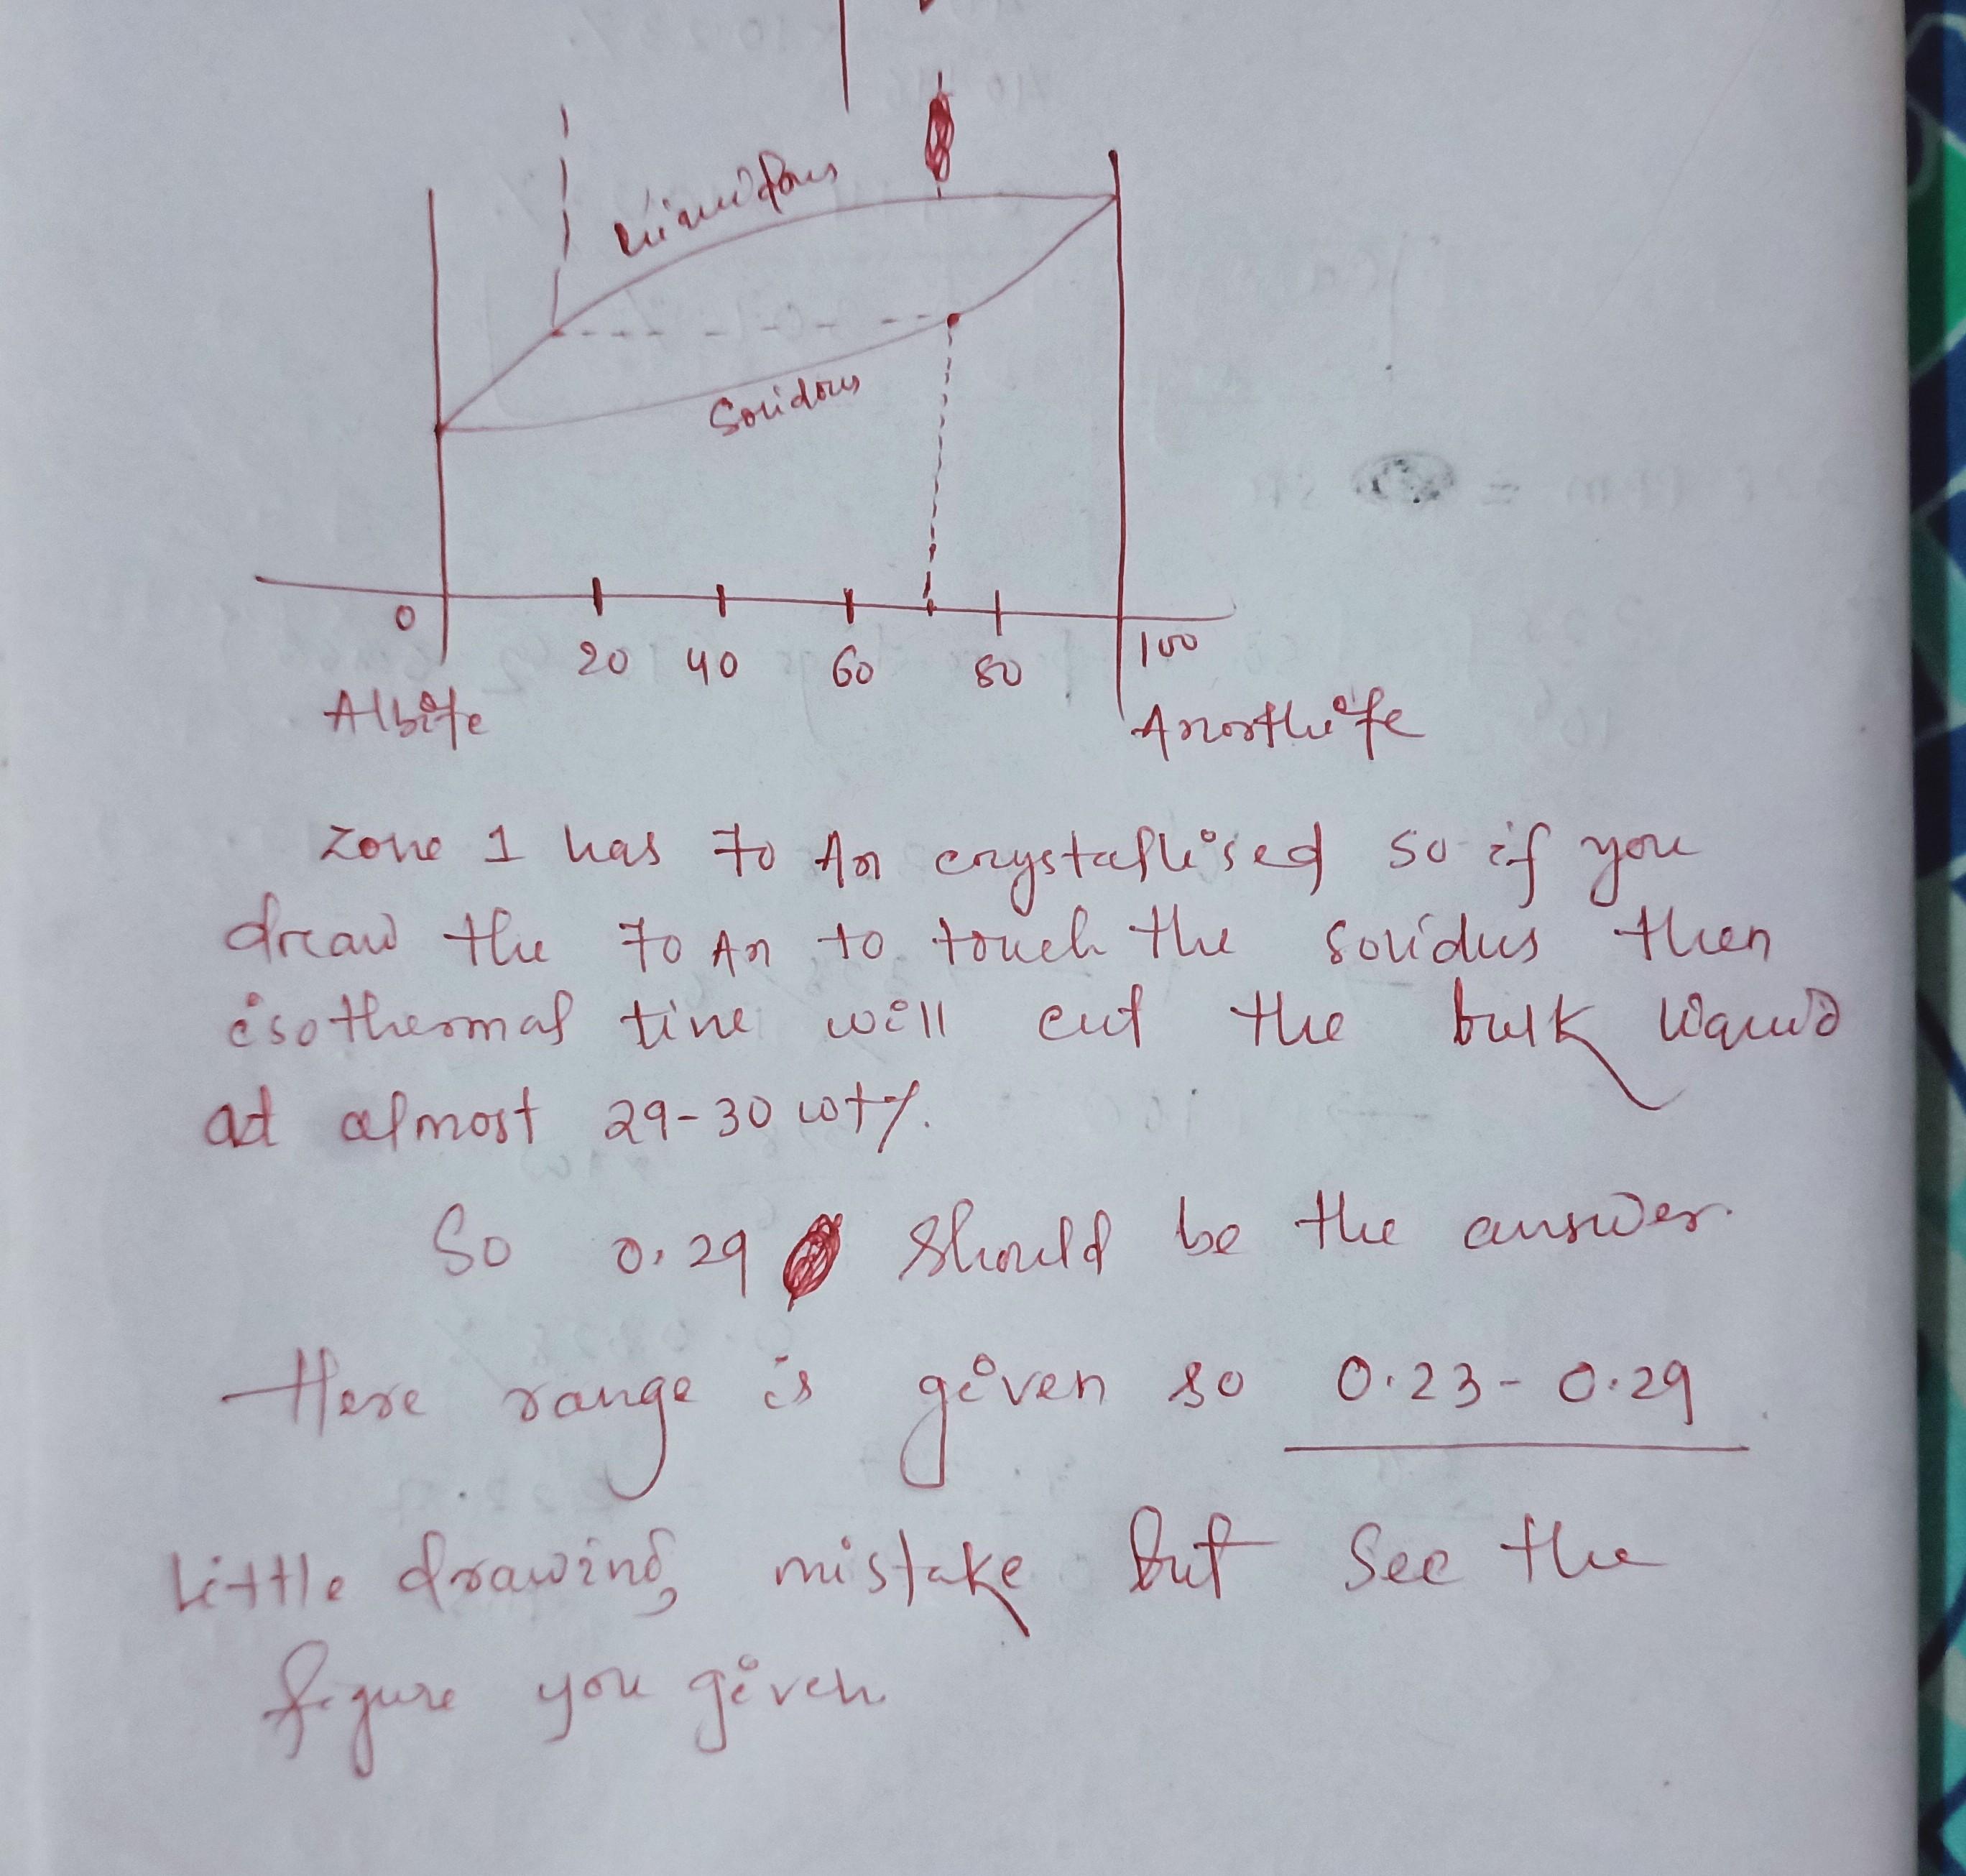 Liquidous
Solidous
0
20 40 60 80 100
Albite Anorthite
Zone 1 has 70 An crystallised so if you
draw the 70 An to touch the solidus then
isothermal line will cut the bulk liquid
at almost 29-30 wt%.
So 0.29 should be the answer.
Here range is given so 0.23 - 0.29
Little drawing mistake but see the
figure you given